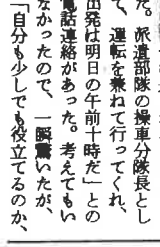 た。派遣部隊の操車分隊長とし
て、運転を兼ねて行ってくれ、
出発は明日の午前十時だ」との
電話連絡があった。考えてもい
なかったので、一瞬驚いたが、
「自分も少しでも役立てるのか、